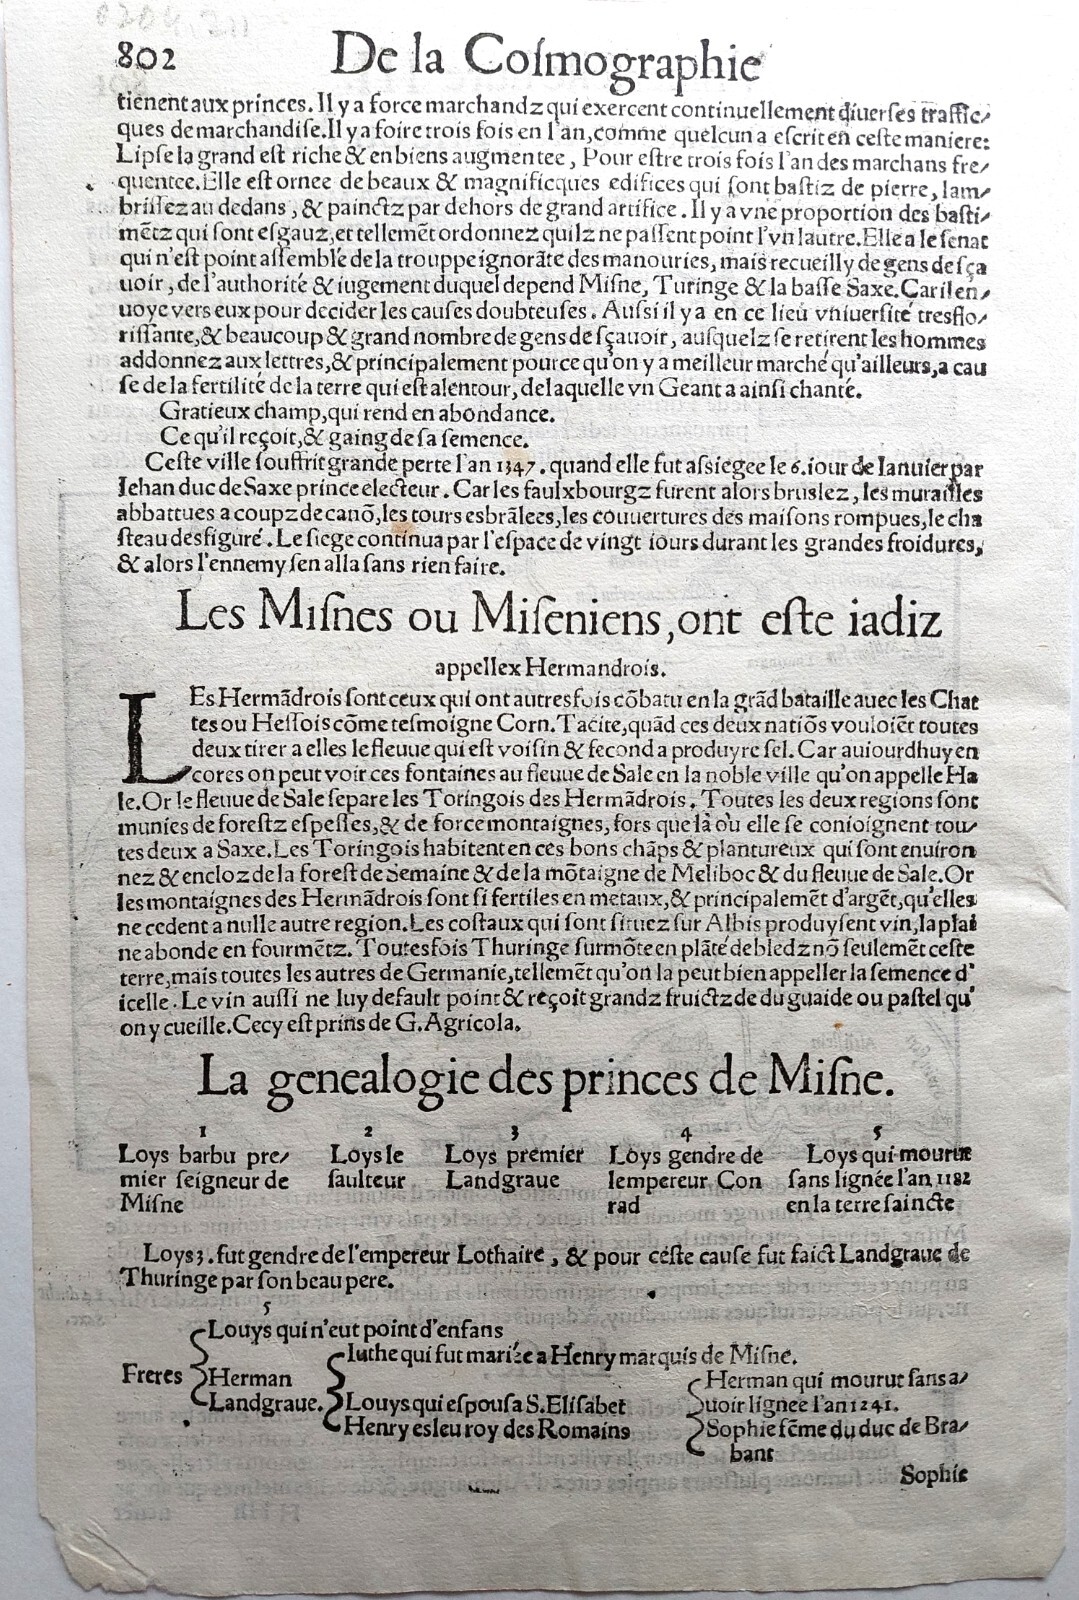 802 De la Coſmographie
tienent aux princes. Il y a force marchandz qui exercent continuellement diuerſes traffic⸗
ques de marchandiſe. Il y a foire trois fois en l'an, comme quelcun a eſcrit en ceſte maniere:
Lipſe la grand eſt riche & en biens augmentee, Pour eſtre trois fois l'an des marchans fre⸗
quentee. Elle eſt ornee de beaux & magnificques edifices qui ſont baſtiz de pierre, lam⸗
briſſez au dedans, & painctz par dehors de grand artifice. Il y a vne proportion des baſti⸗
mẽtz qui ſont eſgauz, et tellemẽt ordonnez quilz ne paſſent point l'vn lautre. Elle a le ſenat
qui n'eſt point aſſemblé de la trouppe ignorãte des manouries, mais recueilly de gens de ſça
uoir, de l'authorité & iugement duquel depend Miſne, Turinge & la baſſe Saxe. Car il en⸗
uoye vers eux pour decider les cauſes doubteuſes. Auſsi il y a en ce lieu vniuerſité tresflo⸗
riſſante, & beaucoup & grand nombre de gens de ſçauoir, auſquelz ſe retirent les hommes
addonnez aux lettres, & principalement pource qu'on y a meilleur marché qu'ailleurs, a cau
ſe de la fertilité de la terre qui eſt alentour, de laquelle vn Geant a ainſi chanté.
Gratieux champ, qui rend en abondance.
Ce qu'il reçoit, & gaing de ſa ſemence.
Ceſte ville ſouffrit grande perte l'an 1347. quand elle fut aſsiegee le 6. iour de Ianuier par
Iehan duc de Saxe prince electeur. Car les faulxbourgz furent alors bruslez, les murailles
abbattues a coupz de canõ, les tours esbrãlees, les couuertures des maiſons rompues, le cha
ſteau desfiguré. Le ſiege continua par l'eſpace de vingt iours durant les grandes froidures,
& alors l'ennemy ſen alla ſans rien faire.
Les Miſnes ou Miſeniens, ont eſte iadiz
appellex Hermandrois.
LEs Hermãdrois ſont ceux qui ont autresfois cõbatu en la grãd bataille auec les Chat
tes ou Heſſois cõme teſmoigne Corn. Tacite, quãd ces deux natiõs vouloiẽt toutes
deux tirer a elles le fleuue qui eſt voiſin & fecond a produyre ſel. Car auiourdhuy en
cores on peut voir ces fontaines au fleuue de Sale en la noble ville qu'on appelle Ha
le. Or le fleuue de Sale ſepare les Toringois des Hermãdrois. Toutes les deux regions ſont
munies de foreſtz eſpeſſes, & de force montaignes, fors que là ou elle ſe conioignent tou⸗
tes deux a Saxe. Les Toringois habitent en ces bons chãps & plantureux qui ſont enuiron
nez & encloz de la foreſt de Semaine & de la mõtaigne de Meliboc & du fleuue de Sale. Or
les montaignes des Hermãdrois ſont ſi fertiles en metaux, & principalemẽt d'argẽt, qu'elles
ne cedent a nulle autre region. Les coſtaux qui ſont ſituez ſur Albis produyſent vin, la plai
ne abonde en fourmẽtz. Toutesfois Thuringe ſurmõte en plãté de bledz nõ ſeulemẽt ceſte
terre, mais toutes les autres de Germanie, tellemẽt qu'on la peut bien appeller la ſemence d'
icelle. Le vin auſſi ne luy default point & reçoit grandz fruictz de du guaide ou paſtel qu'
on y cueille. Cecy eſt prins de G. Agricola.
La genealogie des princes de Miſne.
1 2 3 4 5
Loys barbu pre⸗ Loys le Loys premier Loys gendre de Loys qui mourut
mier ſeigneur de ſaulteur Landgraue lempereur Con ſans lignée l'an 1182
Miſne rad en la terre ſaincte
Loys 3. fut gendre de l'empereur Lothaire, & pour ceſte cauſe fut faict Landgraue de
Thuringe par ſon beau pere.
5
Louys qui n'eut point d'enfans
Iuthe qui fut mariée a Henry marquis de Miſne.
Freres Herman Herman qui mourut ſans a⸗
Landgraue. Louys qui eſpouſa S. Eliſabet uoir lignee l'an 1241.
Henry esleu roy des Romains Sophie fẽme du duc de Bra⸗
bant
Sophie